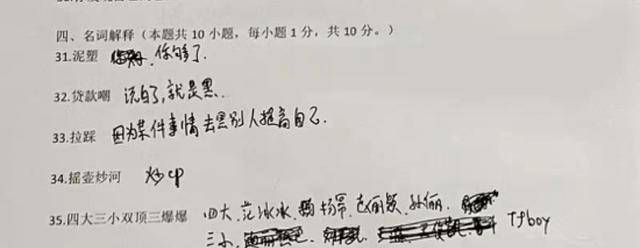 四、名词解释（本题共 10 小题，每小题 1 分，共 10 分。）
31.泥塑 你够了.
32.贷款嘲 说白了,就是黑.
33.拉踩 因为某件事情去黑别人提高自己.
34.摇壶炒河 炒cp
35.四大三小双顶三爆爆 四大.范冰冰. 杨幂.赵丽颖.孙俪.
三小. Tfboy